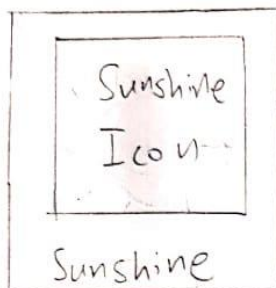 Sunshine
Icon
Sunshine